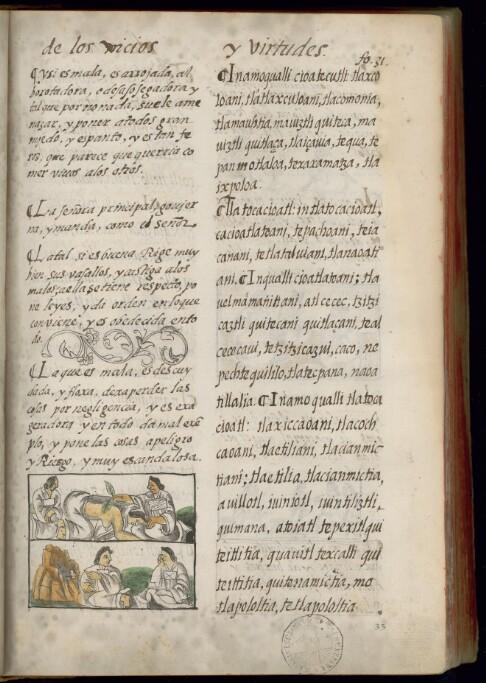 de los vicios y virtudes
fo. 31
¶ Y si es mala, es arrojada, al
borotadora, o desasosegadora y
tal que por no nada, suele ame
nazar, y poner a todos gran
miedo, y espanto, y es tan fe
roz, que parece que querria co
mer vivos a los otros.
¶ La señora principal, gouier
na, y manda, como el señor.
¶ La tal si es buena, Rige muy
bien sus vasallos, y castiga a los
malos: a ella se tiene respecto, po
ne leyes, y da orden en lo que
conviene, y es obedecida en to
do.
¶ La que es mala, es descuy
dada, y floxa, dexa perder las
cosas por negligencia, y es exa
geradora y en todo da mal exẽ
plo, y pone las cosas a peligro
y Riesgo, y muy escandalosa.
¶ Inamoqualli cioatecutli tlaxco
loani, tlatlaxculoani, tlacomonia,
tlamauhtia, mauiztli quiteca, ma
uiztli quitlaça, tlaiçauia, tequa, te
pan motlaloa, texaramatza, tla
ixpoloa.
¶ Tlatocacioatl: in tlatocacioatl,
cacioatlatoani, tepachoani, teia
canani, tetlataluiani, tlanaoati
ani. ¶ In qualli cioatlatoani; tla
uelmamanitiani, atl cecec, tzitzi
caztli quitecani quitlaçani, teal
cececaui, tetzitzicazui, caco, ne
pechtequililo, tlatecpana, naoa
tillalia. ¶ Inamo qualli tlatoca
cioatl: tlaxiccaoani, tlacoch
caoani, tlaetiliani, tlacianmic
tiani; tlaetilia, tlacianmictia,
auillotl, iuiniotl, iuintiliztli,
quimana, atoiatl tepexitl qui
teittitia, quauitl texcalli qui
teittitia, quitenamictia, mo
tlapololtia, tetlapololtia
33